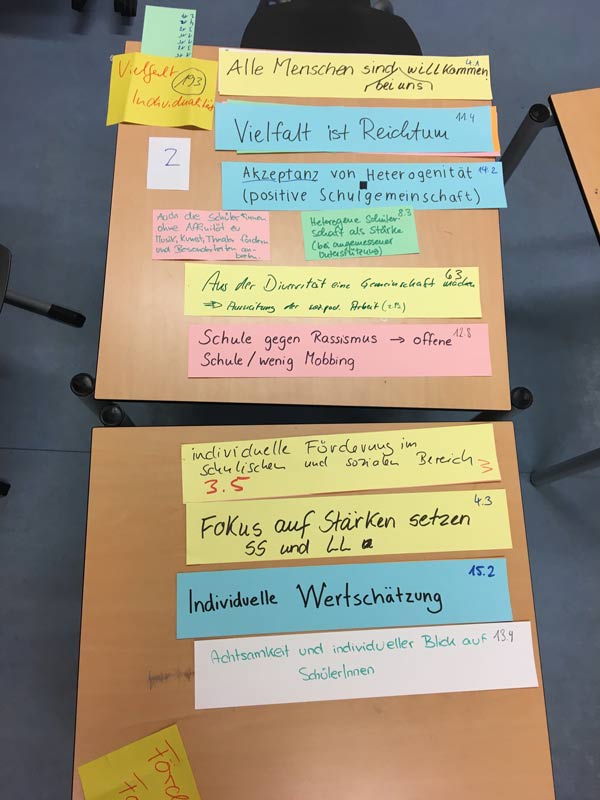 Vielfalt
193
Individualität
2
Alle Menschen sind willkommen
4.1
bei uns
Vielfalt ist Reichtum
11.4
Akzeptanz von Heterogenität
14.2
(positive Schulgemeinschaft)
Auch die Schüler*innen
ohne Affinität zu
Musik, Kunst, Theater fördern
und Besonderheiten
Heterogene Schüler-
8.3
schaft als Stärke
(bei angemessener
Unterstützung)
Aus der Diversität eine Gemeinschaft machen
6.3
⇒ Ausweitung der Arbeit (z.B.)
Schule gegen Rassismus → offene
12.8
Schule/wenig Mobbing
individuelle Förderung im
schulischen und sozialen Bereich
3.5
Fokus auf Stärken setzen
4.3
SS und LL
Individuelle Wertschätzung
15.2
Achtsamkeit und individueller Blick auf
13.4
SchülerInnen